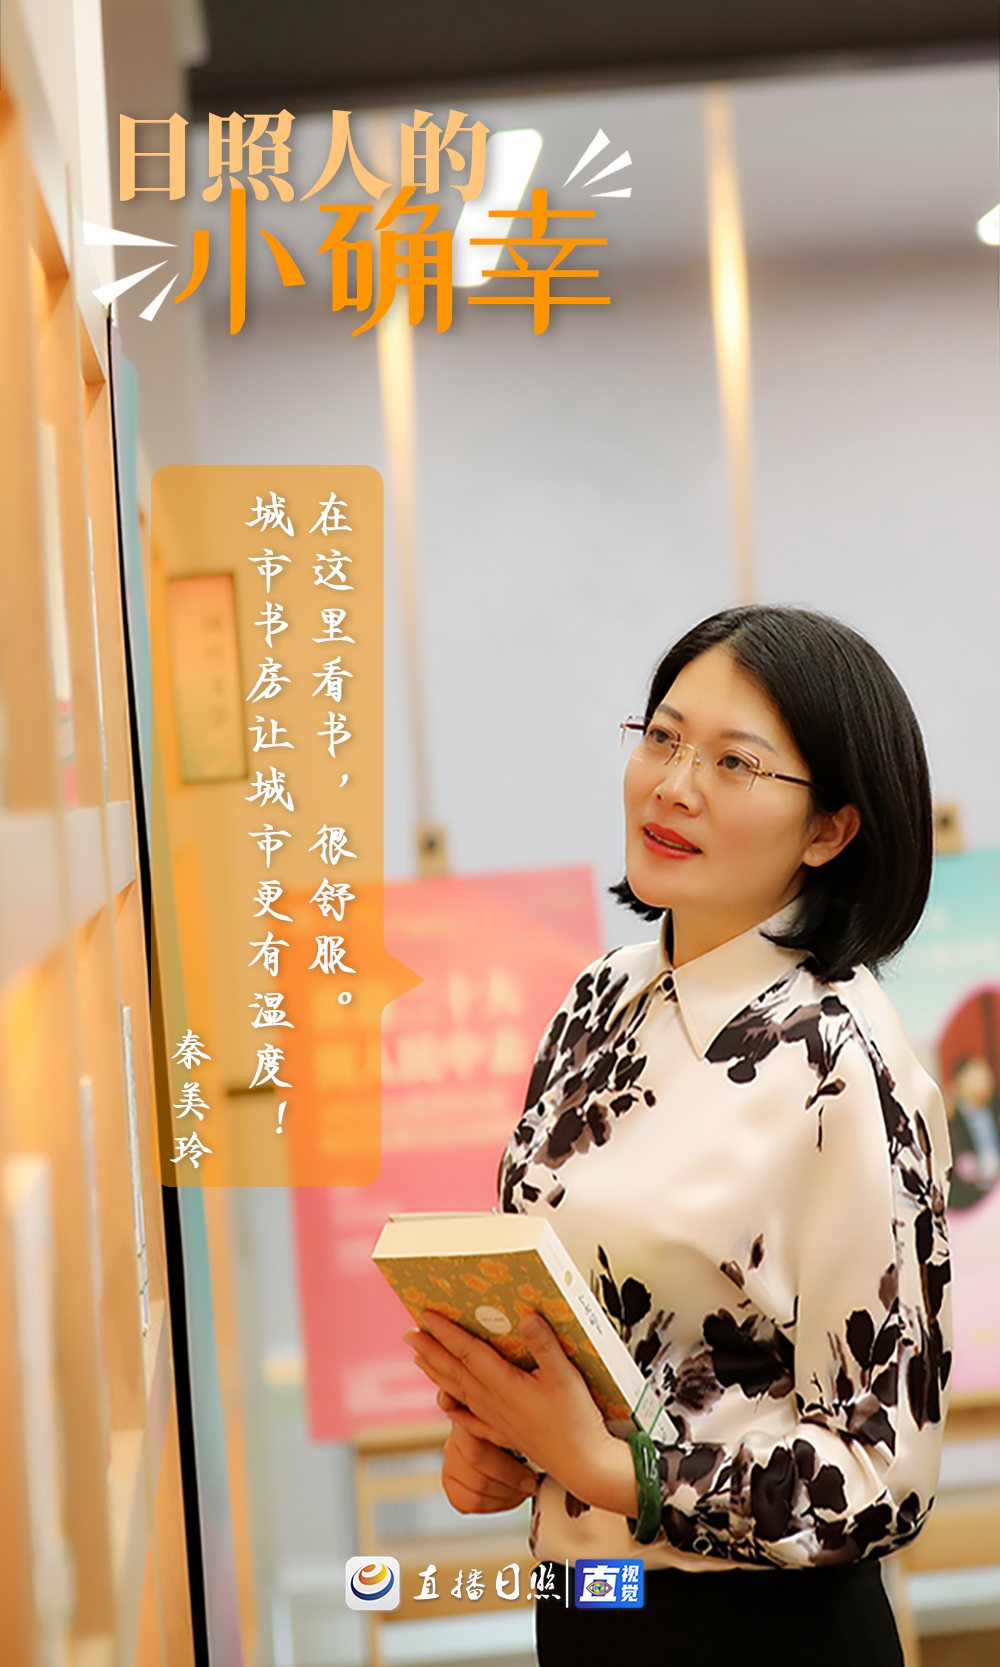 日照人的
小确幸
在这里看书，很舒服。
城市书房让城市更有温度！
秦美玲
二十大
直播日照
直视觉